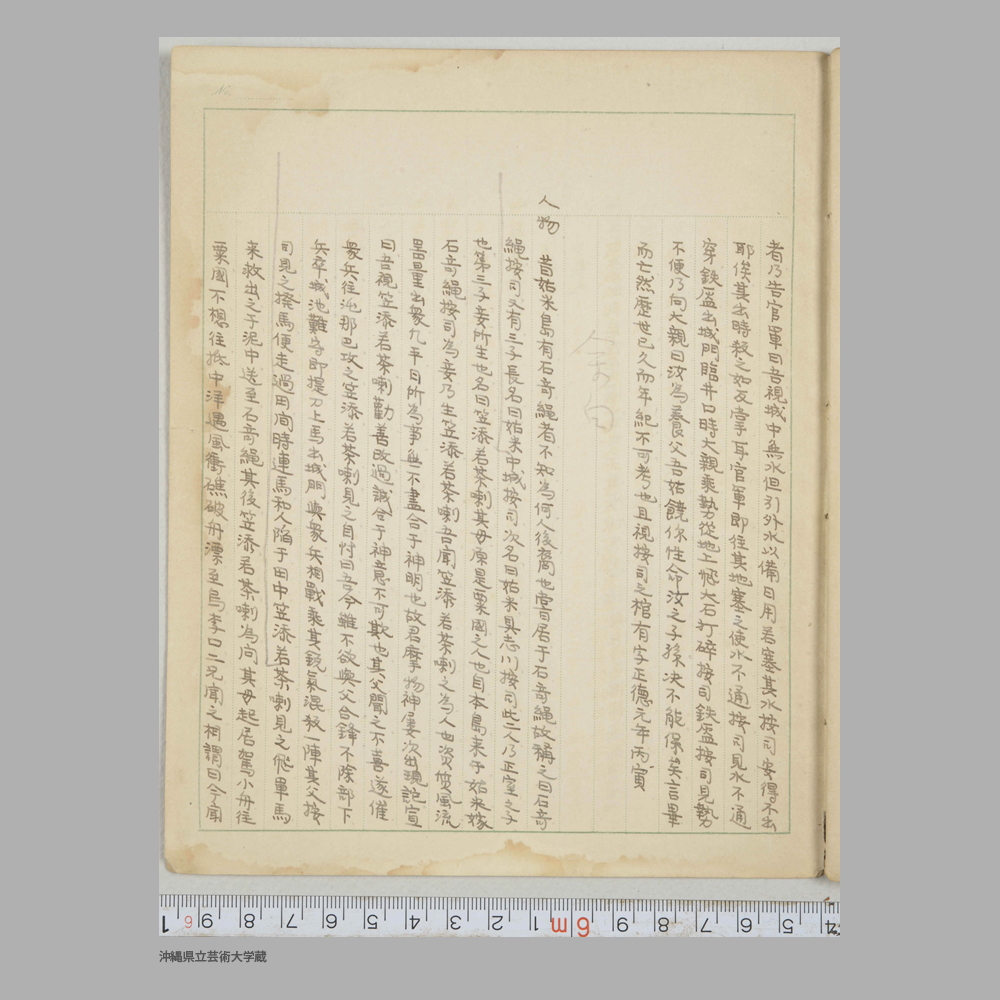 者乃告官軍曰吾視城中無水但引外水以備日用若塞其水按司安得不出
耶俟其出時殺之如反掌耳官軍即往其地塞之使水不通按司見水不通
穿鉄盔出城門臨井口時大親乗勢従地上飛大石打碎按司鉄盔按司見勢
不便乃向大親曰汝為養父吾姑饒你性命汝之子孫决不能保矣言畢
而亡然歴世已久而年紀不可考也且視按司之棺有字正德元年丙寅
人物
昔姑米島有石奇縄者不知為何人後裔也嘗居于石奇縄故稱之曰石奇
縄按司又有三子長名曰姑米中城按司次名曰姑米具志川按司此二人乃正室之子
也第三子妾所生也名曰笠添若茶喇其母原是粟国之人也自本島来于姑米嫁
石奇縄按司為妾乃生笠添若茶喇吾聞笠添若茶喇之為人也資質風流
噐量出衆凡平日所為事無不盡合于神明也故君摩物神屢次出現託宣
曰吾視笠添若茶喇勸善改過誠合于神意不可欺也其父聞之不喜遂催
衆兵往沲那巴攻之笠添若茶喇見之自忖曰吾今雖不欲與父合鋒不除部下
兵卒城池難守即提刀上馬出城門與衆兵相戰乗其鋭氣混殺一陣其父按
司見之撥馬便走過田間時連馬和人陥于田中笠添若茶喇見之飛單馬
来救出之于泥中送至石奇縄其後笠添若茶喇為问其母起居駕小舟往
粟国不想往扺中洋遇風衝礁破舟漂至烏李口二兄聞之相謂曰今聞
沖縄県立芸術大学蔵